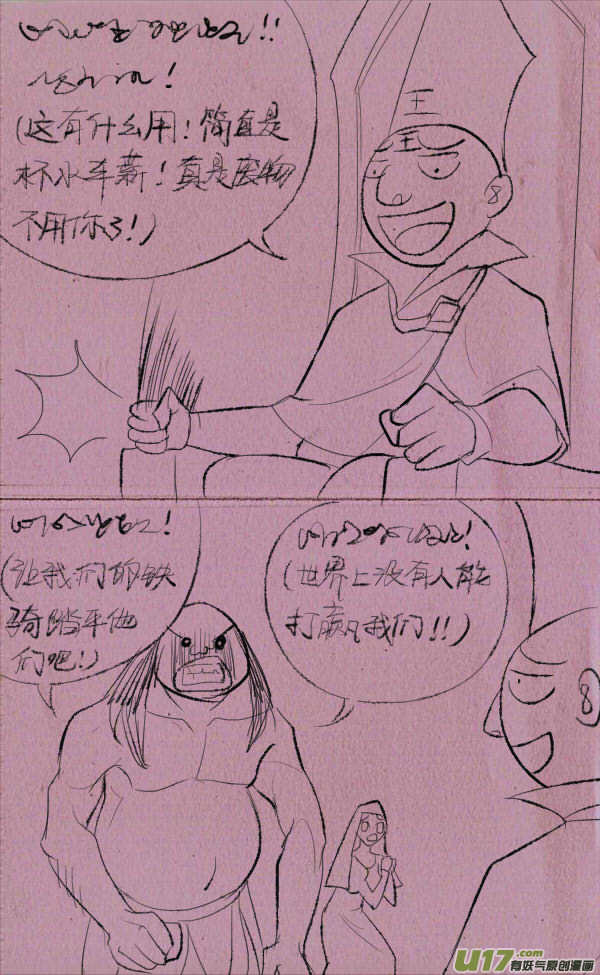 (这有什么用！简直是
杯水车薪！真是废物
不用你了！)
王
(让我们的铁
骑踏平他
们吧！)
(世界上没有人能
打赢我们！！)
U17.com
有妖气原创漫画